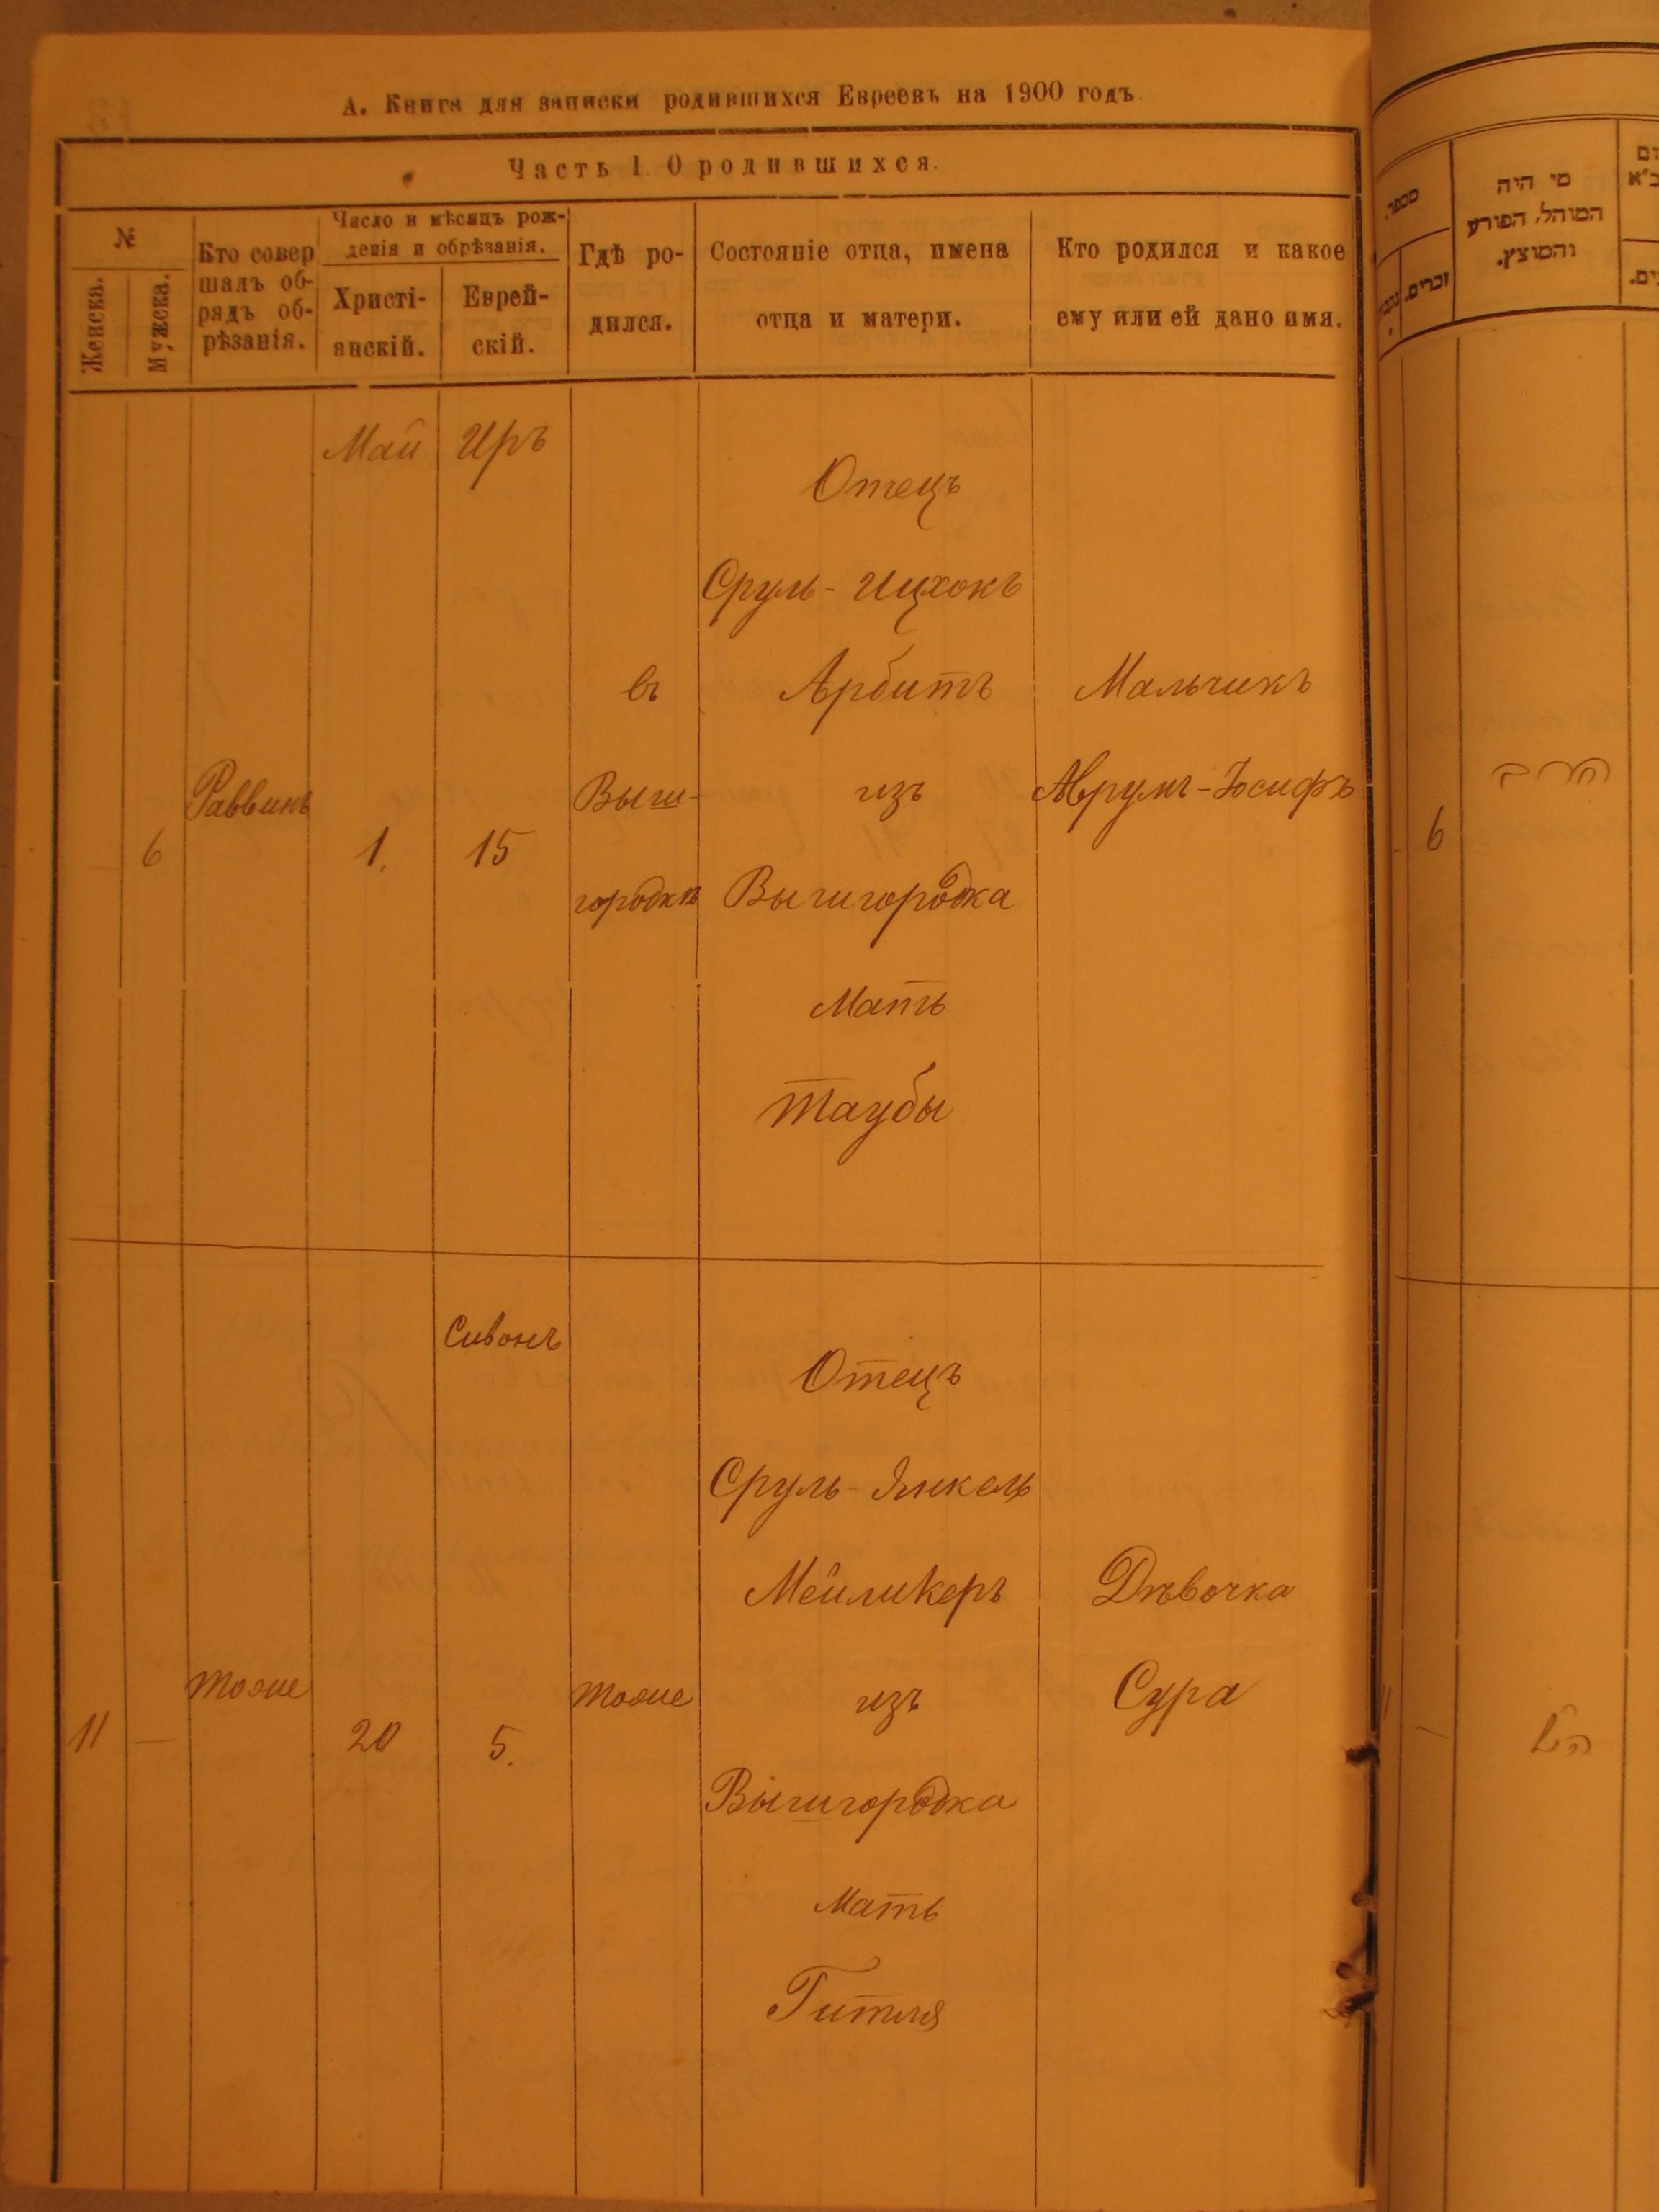 А. Книга для записки родившихся Евреевъ на 1900 годъ.
Часть 1. О родившихся.
№
Женска.
Мужска.
Кто совер
шалъ об-
рядъ об-
рѣзанія.
Число и мѣсяцъ рож-
денія и обрѣзанія.
Христі-
анскій.
Еврей-
скій.
Гдѣ ро-
дился.
Состояніе отца, имена
отца и матери.
Кто родился и какое
ему или ей дано имя.
Май Иръ
Отецъ
Сруль-Ицхокъ
въ Арбитъ Мальчикъ
Раввинъ Выш- изъ Аврумъ-Іосифъ
6 1. 15
городкѣ Вышгородка
Мать
Таубы
Сивонъ
Отецъ
Сруль-Янкель
Мейликеръ Дѣвочка
тоже тоже изъ Сура
11 — 20 5.
Вышгородка
Мать
Гитля
מספר.
זכרים.
מי היה
המוהל, הפורע
והמוצץ.
6
הרב
11 —